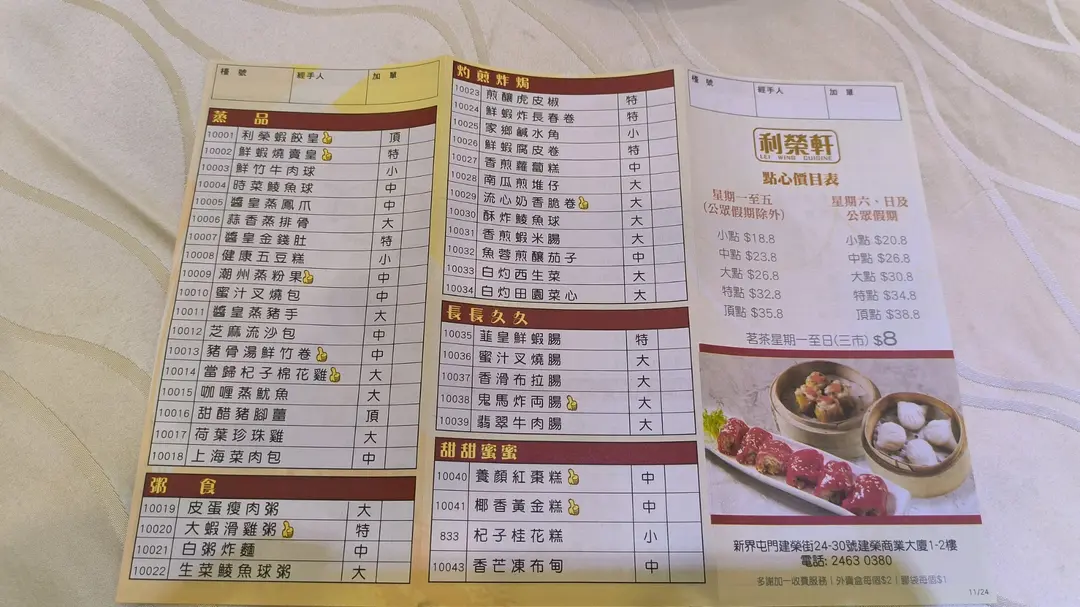 檯號 經手人 加單
蒸品
10001 利榮蝦餃皇 頂
10002 鮮蝦燒賣皇 特
10003 鮮竹牛肉球 小
10004 時菜鯪魚球 中
10005 醬皇蒸鳳爪 中
10006 蒜香蒸排骨 大
10007 醬皇金錢肚 特
10008 健康五豆糕 小
10009 潮州蒸粉果 中
10010 蜜汁叉燒包 中
10011 醬皇蒸豬手 大
10012 芝麻流沙包 中
10013 豬骨湯鮮竹卷 中
10014 當歸杞子棉花雞 大
10015 咖喱蒸魷魚 大
10016 甜醋豬腳薑 頂
10017 荷葉珍珠雞 大
10018 上海菜肉包 中
粥食
10019 皮蛋瘦肉粥 大
10020 大蝦滑雞粥 特
10021 白粥炸麵 中
10022 生菜鯪魚球粥 大
灼煎炸焗
10023 煎釀虎皮椒 特
10024 鮮蝦炸長春卷 特
10025 家鄉鹹水角 小
10026 鮮蝦腐皮卷 特
10027 香煎蘿蔔糕 中
10028 南瓜煎堆仔 大
10029 流心奶香脆卷 大
10030 酥炸鯪魚球 大
10031 香煎蝦米腸 大
10032 魚蓉煎釀茄子 中
10033 白灼西生菜 大
10034 白灼田園菜心 大
長長久久
10035 韮皇鮮蝦腸 特
10036 蜜汁叉燒腸 大
10037 香滑布拉腸 大
10038 鬼馬炸両腸 大
10039 翡翠牛肉腸 大
甜甜蜜蜜
10040 養顏紅棗糕 中
10041 椰香黃金糕 中
833 杞子桂花糕 小
10043 香芒凍布甸 中
檯號 經手人 加單
利榮軒
LEI WING CUISINE
點心價目表
星期一至五 星期六、日及
(公眾假期除外) 公眾假期
小點 $18.8 小點 $20.8
中點 $23.8 中點 $26.8
大點 $26.8 大點 $30.8
特點 $32.8 特點 $34.8
頂點 $35.8 頂點 $38.8
茗茶星期一至日(三市) $8
新界屯門建榮街24-30號建榮商業大廈1-2樓
電話: 2463 0380
多謝加一收費服務 | 外賣盒每個$2 | 膠袋每個$1
11/24